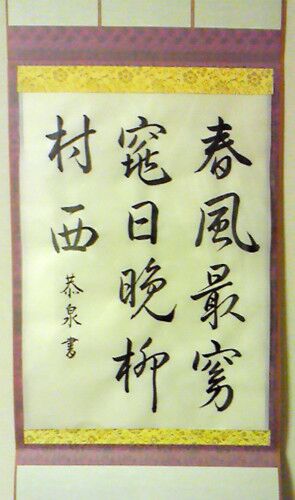 春風最窈
窕日晩柳
村西 恭泉書